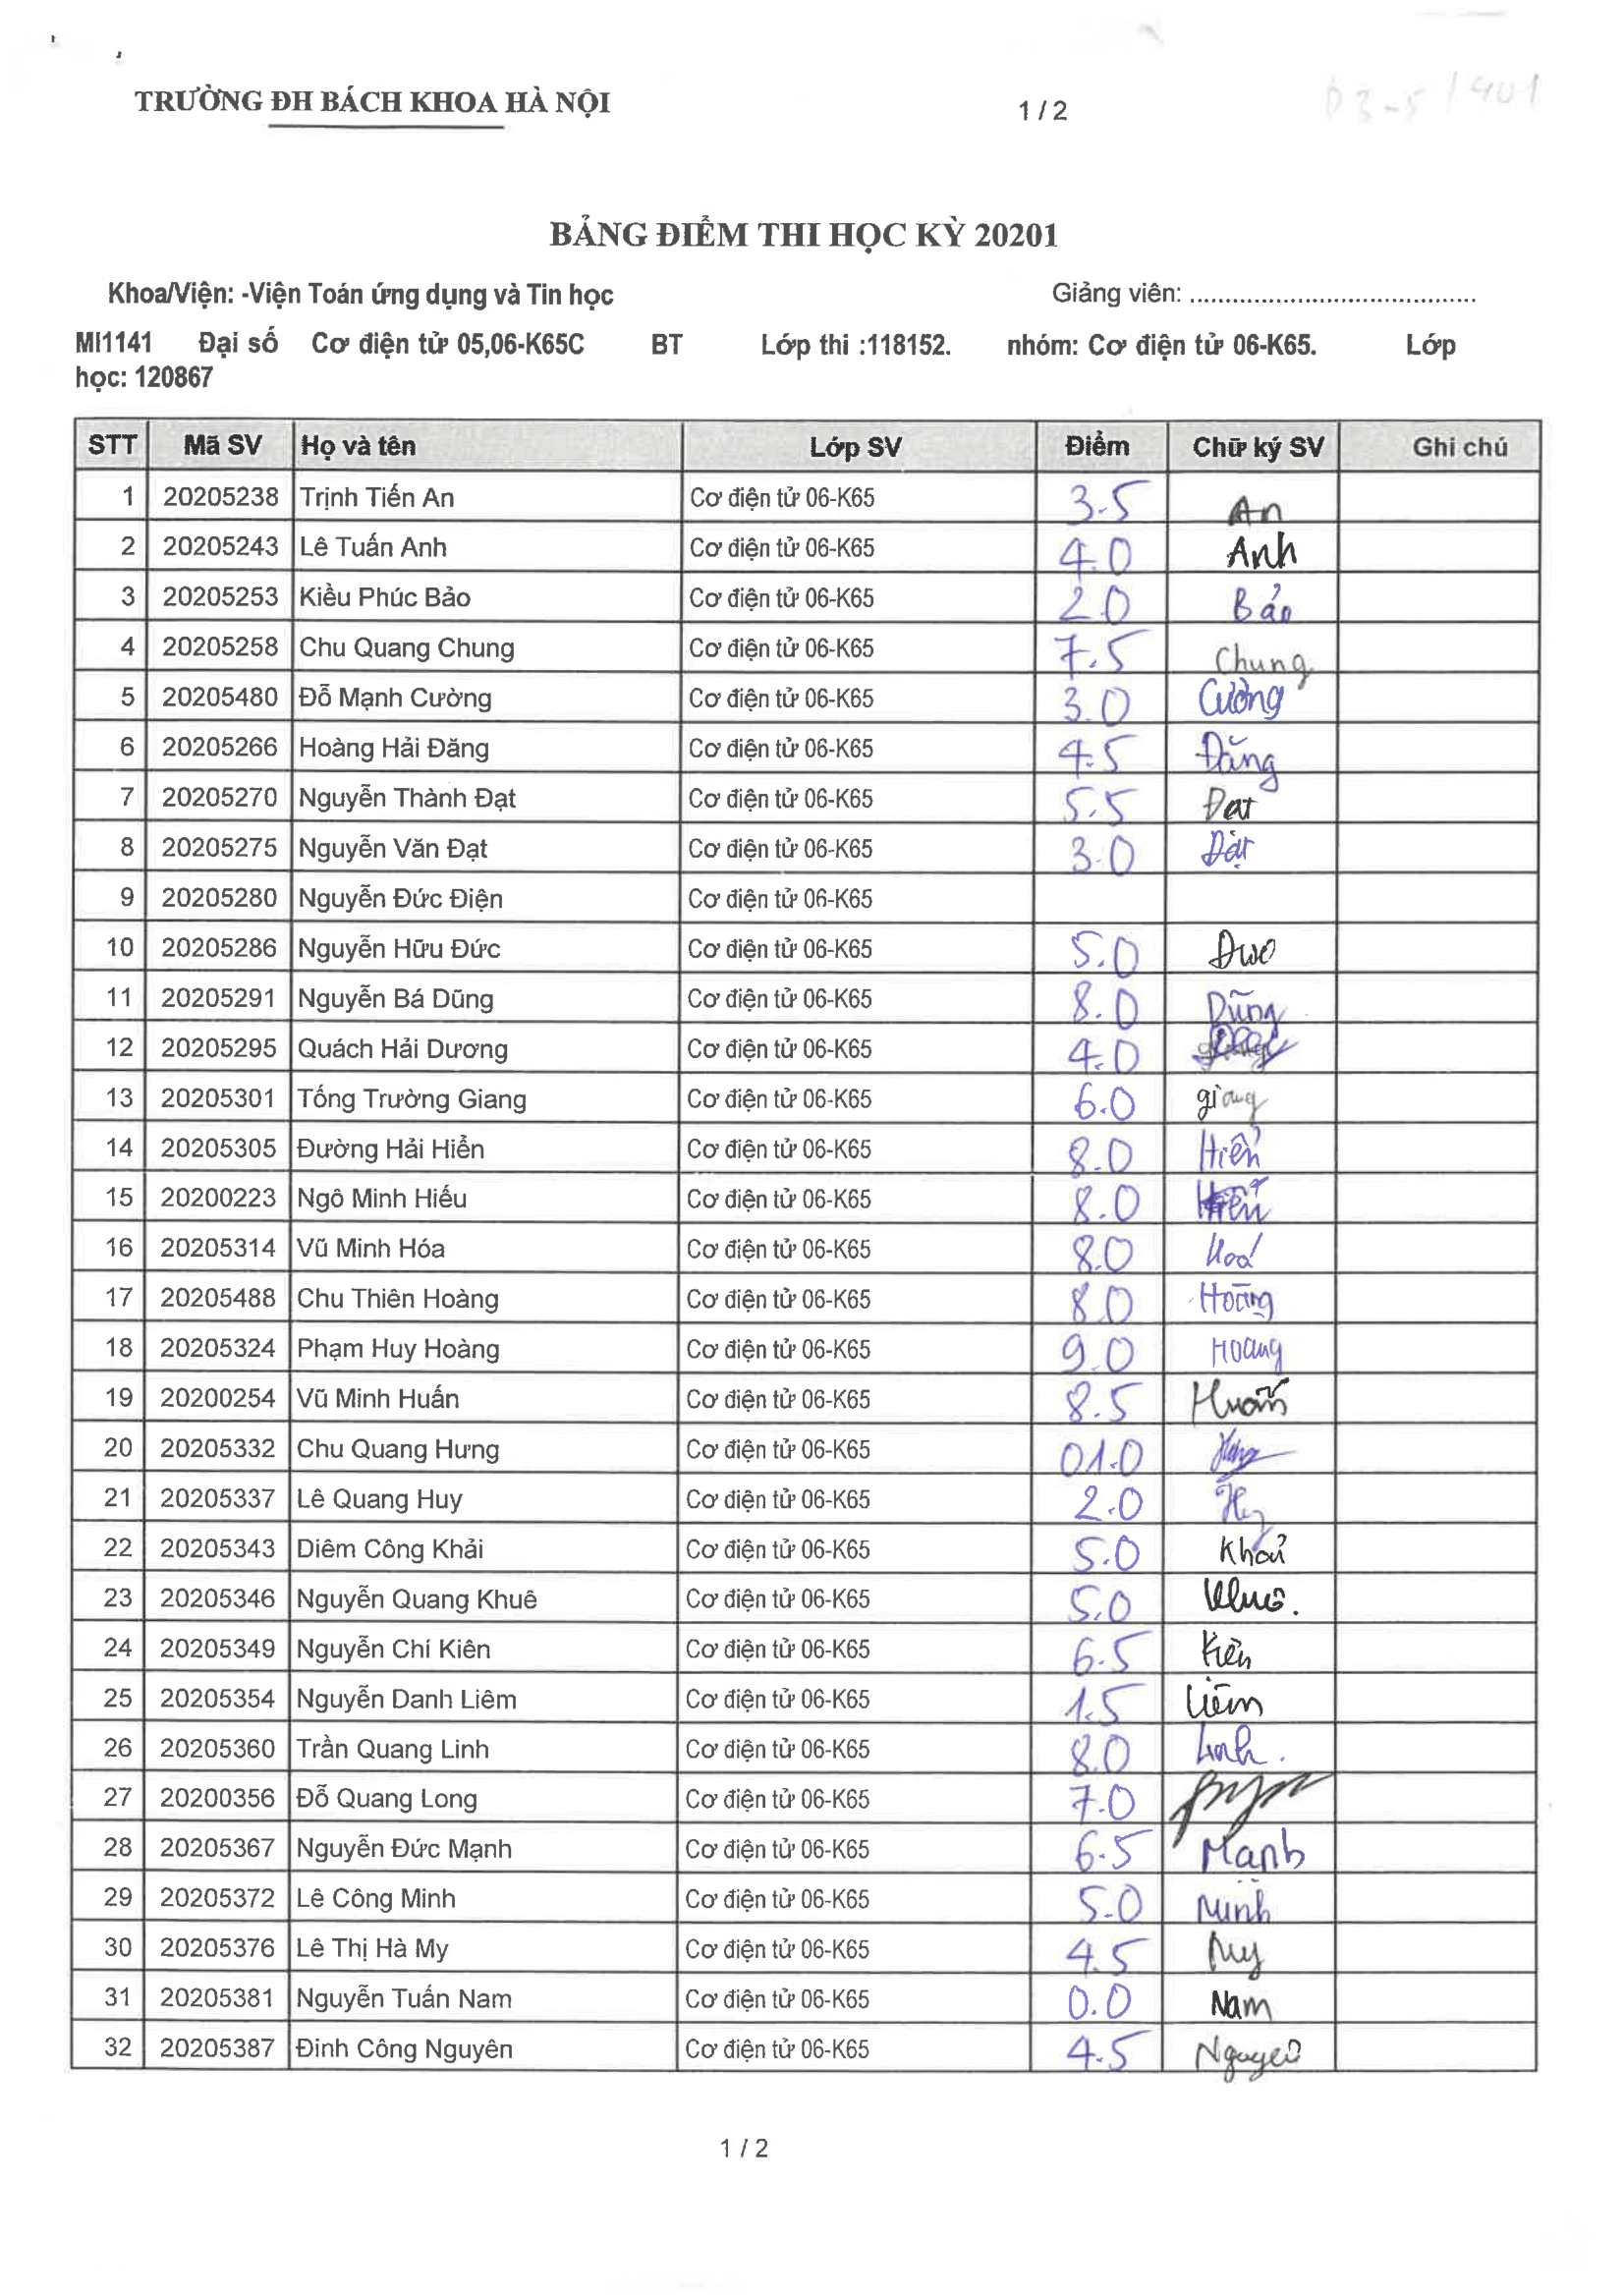 TRƯỜNG ĐH BÁCH KHOA HÀ NỘI 1 / 2 D3-5 / 401
BẢNG ĐIỂM THI HỌC KỲ 20201
Khoa/Viện: -Viện Toán ứng dụng và Tin học Giảng viên: ........................................
MI1141 Đại số Cơ điện tử 05,06-K65C BT Lớp thi :118152. nhóm: Cơ điện tử 06-K65. Lớp
học: 120867
STT Mã SV Họ và tên Lớp SV Điểm Chữ ký SV Ghi chú
1 20205238 Trịnh Tiến An Cơ điện tử 06-K65 3.5 An
2 20205243 Lê Tuấn Anh Cơ điện tử 06-K65 4.0 Anh
3 20205253 Kiều Phúc Bảo Cơ điện tử 06-K65 2.0 Bảo
4 20205258 Chu Quang Chung Cơ điện tử 06-K65 7.5 Chung
5 20205480 Đỗ Mạnh Cường Cơ điện tử 06-K65 3.0 Cường
6 20205266 Hoàng Hải Đăng Cơ điện tử 06-K65 4.5 Đăng
7 20205270 Nguyễn Thành Đạt Cơ điện tử 06-K65 5.5 Đạt
8 20205275 Nguyễn Văn Đạt Cơ điện tử 06-K65 3.0 Đạt
9 20205280 Nguyễn Đức Điện Cơ điện tử 06-K65
10 20205286 Nguyễn Hữu Đức Cơ điện tử 06-K65 5.0 Đức
11 20205291 Nguyễn Bá Dũng Cơ điện tử 06-K65 8.0 Dũng
12 20205295 Quách Hải Dương Cơ điện tử 06-K65 4.0
13 20205301 Tống Trường Giang Cơ điện tử 06-K65 6.0 giang
14 20205305 Đường Hải Hiển Cơ điện tử 06-K65 8.0 Hiển
15 20200223 Ngô Minh Hiếu Cơ điện tử 06-K65 8.0 Hiếu
16 20205314 Vũ Minh Hóa Cơ điện tử 06-K65 8.0 Hoá
17 20205488 Chu Thiên Hoàng Cơ điện tử 06-K65 8.0 Hoàng
18 20205324 Phạm Huy Hoàng Cơ điện tử 06-K65 9.0 Hoang
19 20200254 Vũ Minh Huấn Cơ điện tử 06-K65 8.5 Huấn
20 20205332 Chu Quang Hưng Cơ điện tử 06-K65 01.0 Hưng
21 20205337 Lê Quang Huy Cơ điện tử 06-K65 2.0 Huy
22 20205343 Diêm Công Khải Cơ điện tử 06-K65 5.0 Khải
23 20205346 Nguyễn Quang Khuê Cơ điện tử 06-K65 5.0 Khuê.
24 20205349 Nguyễn Chí Kiên Cơ điện tử 06-K65 6.5 Kiên
25 20205354 Nguyễn Danh Liêm Cơ điện tử 06-K65 1.5 Liêm
26 20205360 Trần Quang Linh Cơ điện tử 06-K65 8.0 Linh.
27 20200356 Đỗ Quang Long Cơ điện tử 06-K65 7.0
28 20205367 Nguyễn Đức Mạnh Cơ điện tử 06-K65 6.5 Mạnh
29 20205372 Lê Công Minh Cơ điện tử 06-K65 5.0 Minh
30 20205376 Lê Thị Hà My Cơ điện tử 06-K65 4.5 My
31 20205381 Nguyễn Tuấn Nam Cơ điện tử 06-K65 0.0 Nam
32 20205387 Đinh Công Nguyên Cơ điện tử 06-K65 4.5 Nguyên
1 / 2